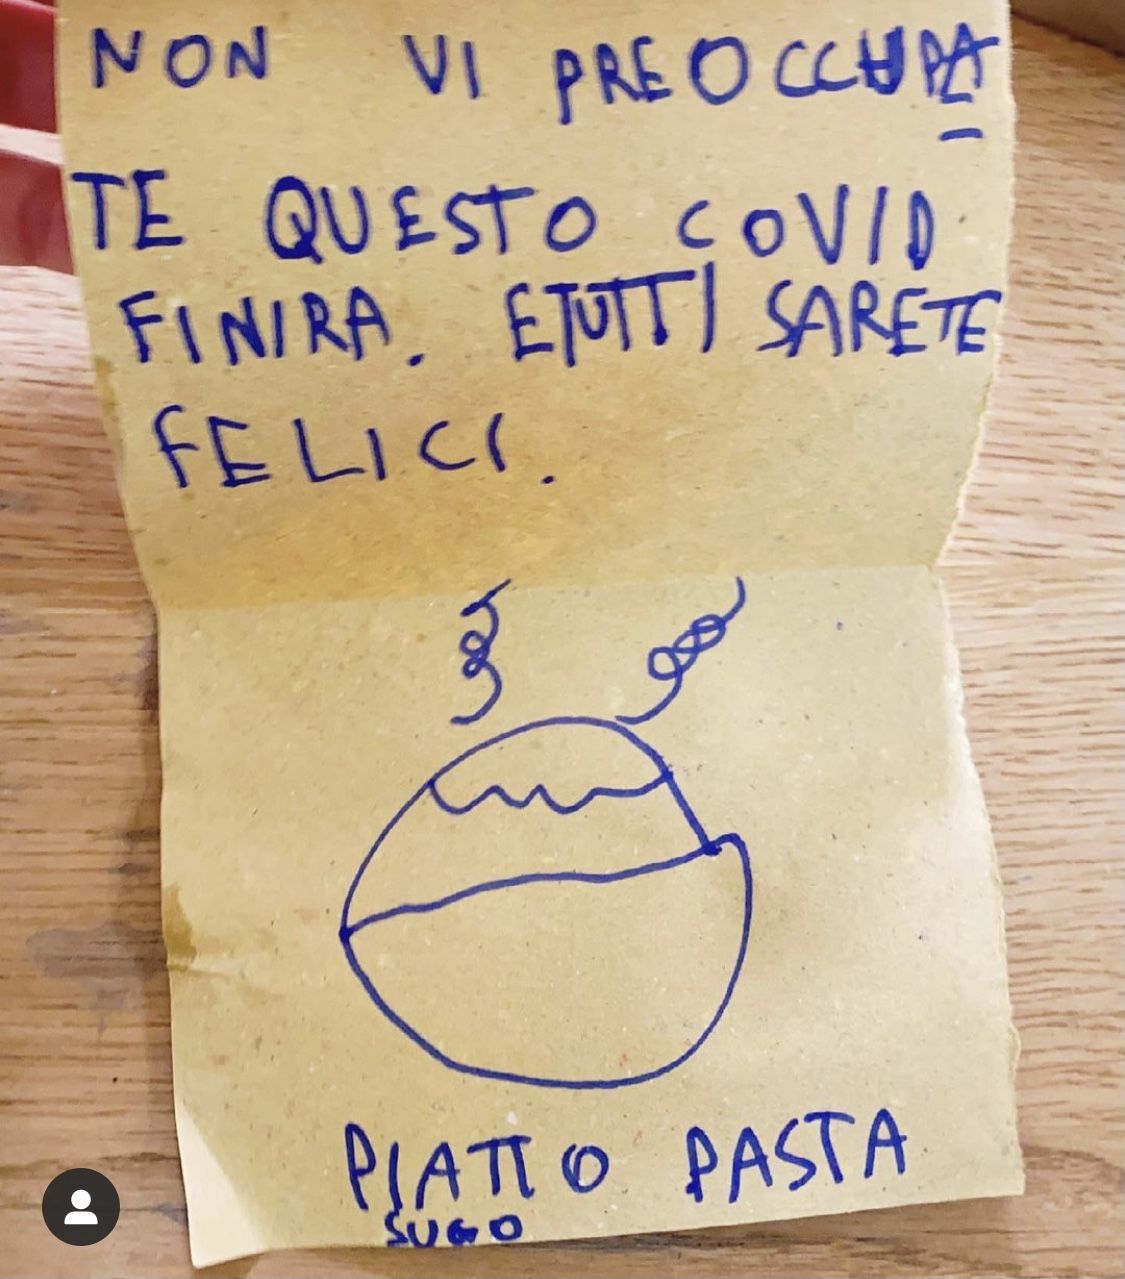 NON VI PREOCCUPA
TE QUESTO COVID
FINIRA. E TUTTI SARETE
FELICI.
PIATTO PASTA
SUGO